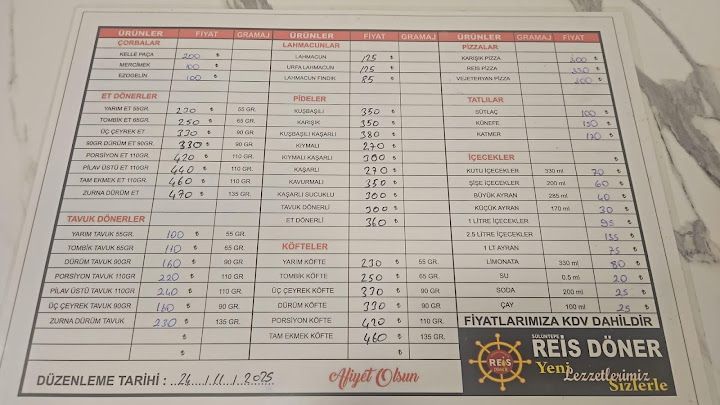 ÜRÜNLER FİYAT GRAMAJ
ÇORBALAR
KELLE PAÇA 200 ₺
MERCİMEK 100 ₺
EZOGELİN 100 ₺
ET DÖNERLER
YARIM ET 55GR. 230 ₺ 55 GR.
TOMBİK ET 65GR. 250 ₺ 65 GR.
ÜÇ ÇEYREK ET 330 ₺ 90 GR.
90GR DÜRÜM ET 90GR 330 ₺ 90 GR.
PORSİYON ET 110GR. 420 ₺ 110 GR.
PİLAV ÜSTÜ ET 110GR. 440 ₺ 110 GR.
TAM EKMEK ET 110GR. 460 ₺ 110 GR.
ZURNA DÜRÜM ET 470 ₺ 135 GR.
TAVUK DÖNERLER
YARIM TAVUK 55GR 100 ₺ 55 GR.
TOMBİK TAVUK 65GR 110 ₺ 65 GR.
DÜRÜM TAVUK 90GR 160 ₺ 90 GR.
PORSİYON TAVUK 110GR 220 ₺ 110 GR.
PİLAV ÜSTÜ TAVUK 110GR 240 ₺ 110 GR.
ÜÇ ÇEYREK TAVUK 90GR 160 ₺ 90 GR.
ZURNA DÜRÜM TAVUK 230 ₺ 135 GR.
₺
₺
ÜRÜNLER FİYAT GRAMAJ
LAHMACUNLAR
LAHMACUN 125 ₺
URFA LAHMACUN 125 ₺
LAHMACUN FINDIK 85 ₺
PİDELER
KUŞBAŞILI 350 ₺
KARIŞIK 350 ₺
KUŞBAŞILI KAŞARLI 380 ₺
KIYMALI 270 ₺
KIYMALI KAŞARLI 300 ₺
KAŞARLI 270 ₺
KAVURMALI 350 ₺
KAŞARLI SUCUKLU 300 ₺
TAVUK DÖNERLİ 300 ₺
ET DÖNERLİ 360 ₺
KÖFTELER
YARIM KÖFTE 230 ₺ 55 GR.
TOMBİK KÖFTE 250 ₺ 65 GR.
ÜÇ ÇEYREK KÖFTE 330 ₺ 90 GR.
DÜRÜM KÖFTE 330 ₺ 90 GR.
PORSİYON KÖFTE 420 ₺ 110 GR.
TAM EKMEK KÖFTE 460 ₺ 135 GR.
ÜRÜNLER FİYAT GRAMAJ
PİZZALAR
KARIŞIK PİZZA 300 ₺
REİS PİZZA 350 ₺
VEJETERYAN PİZZA 300 ₺
TATLILAR
SÜTLAÇ 100 ₺
KÜNEFE 150 ₺
KATMER 170 ₺
İÇECEKLER
KUTU İÇECEKLER 330 ml 70 ₺
ŞİŞE İÇECEKLER 200 ml 60 ₺
BÜYÜK AYRAN 285 ml 40 ₺
KÜÇÜK AYRAN 170 ml 30 ₺
1 LİTRE İÇECEKLER 95 ₺
2.5 LİTRE İÇECEKLER 135 ₺
1 LT AYRAN 75 ₺
LİMONATA 330 ml 80 ₺
SU 0.5 ml 20 ₺
SODA 200 ml 25 ₺
ÇAY 100 ml 25 ₺
FİYATLARIMIZA KDV DAHİLDİR
SÜLÜNTEPE
REİS DÖNER
REİS
DÖNER
Yeni Lezzetlerimiz
Sizlerle
DÜZENLEME TARİHİ : 24 / 11 / 2025
Afiyet Olsun